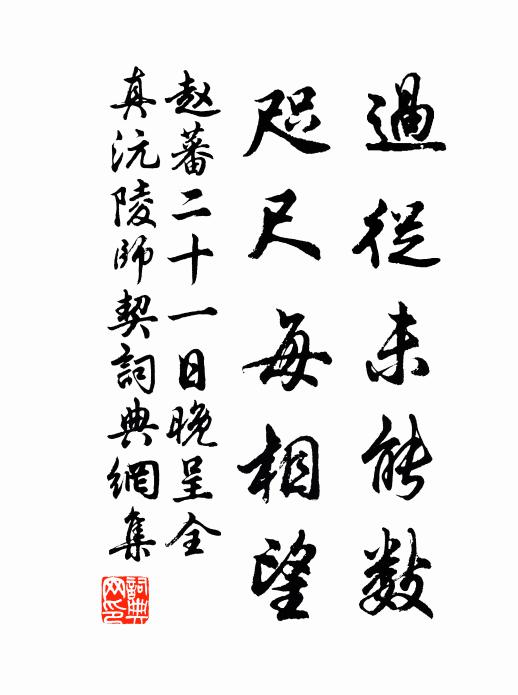 過從未能數
咫尺每相望
赵蕃二十一日晚呈全
真沅陵師契詞典網集
詞典
网印